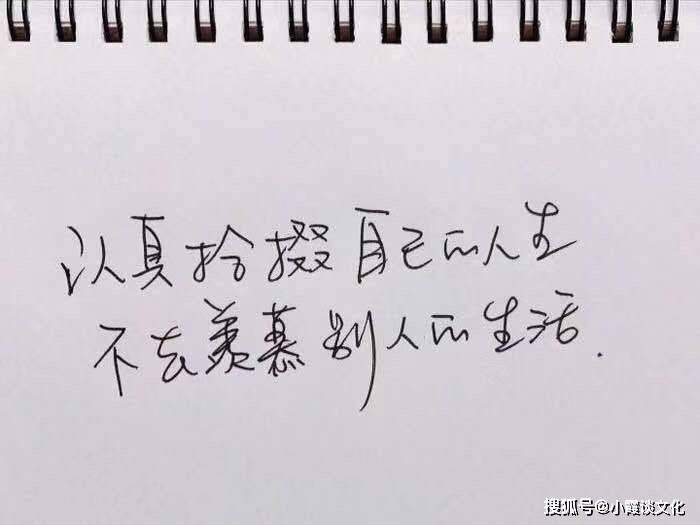 认真拾掇自己的人生
不去羡慕别人的生活.
搜狐号@小霞谈文化